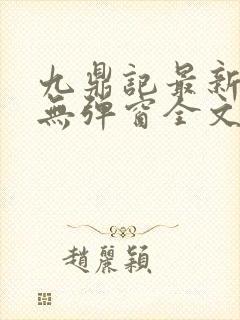 九鼎記最新
無彈窗全文
趙麗穎